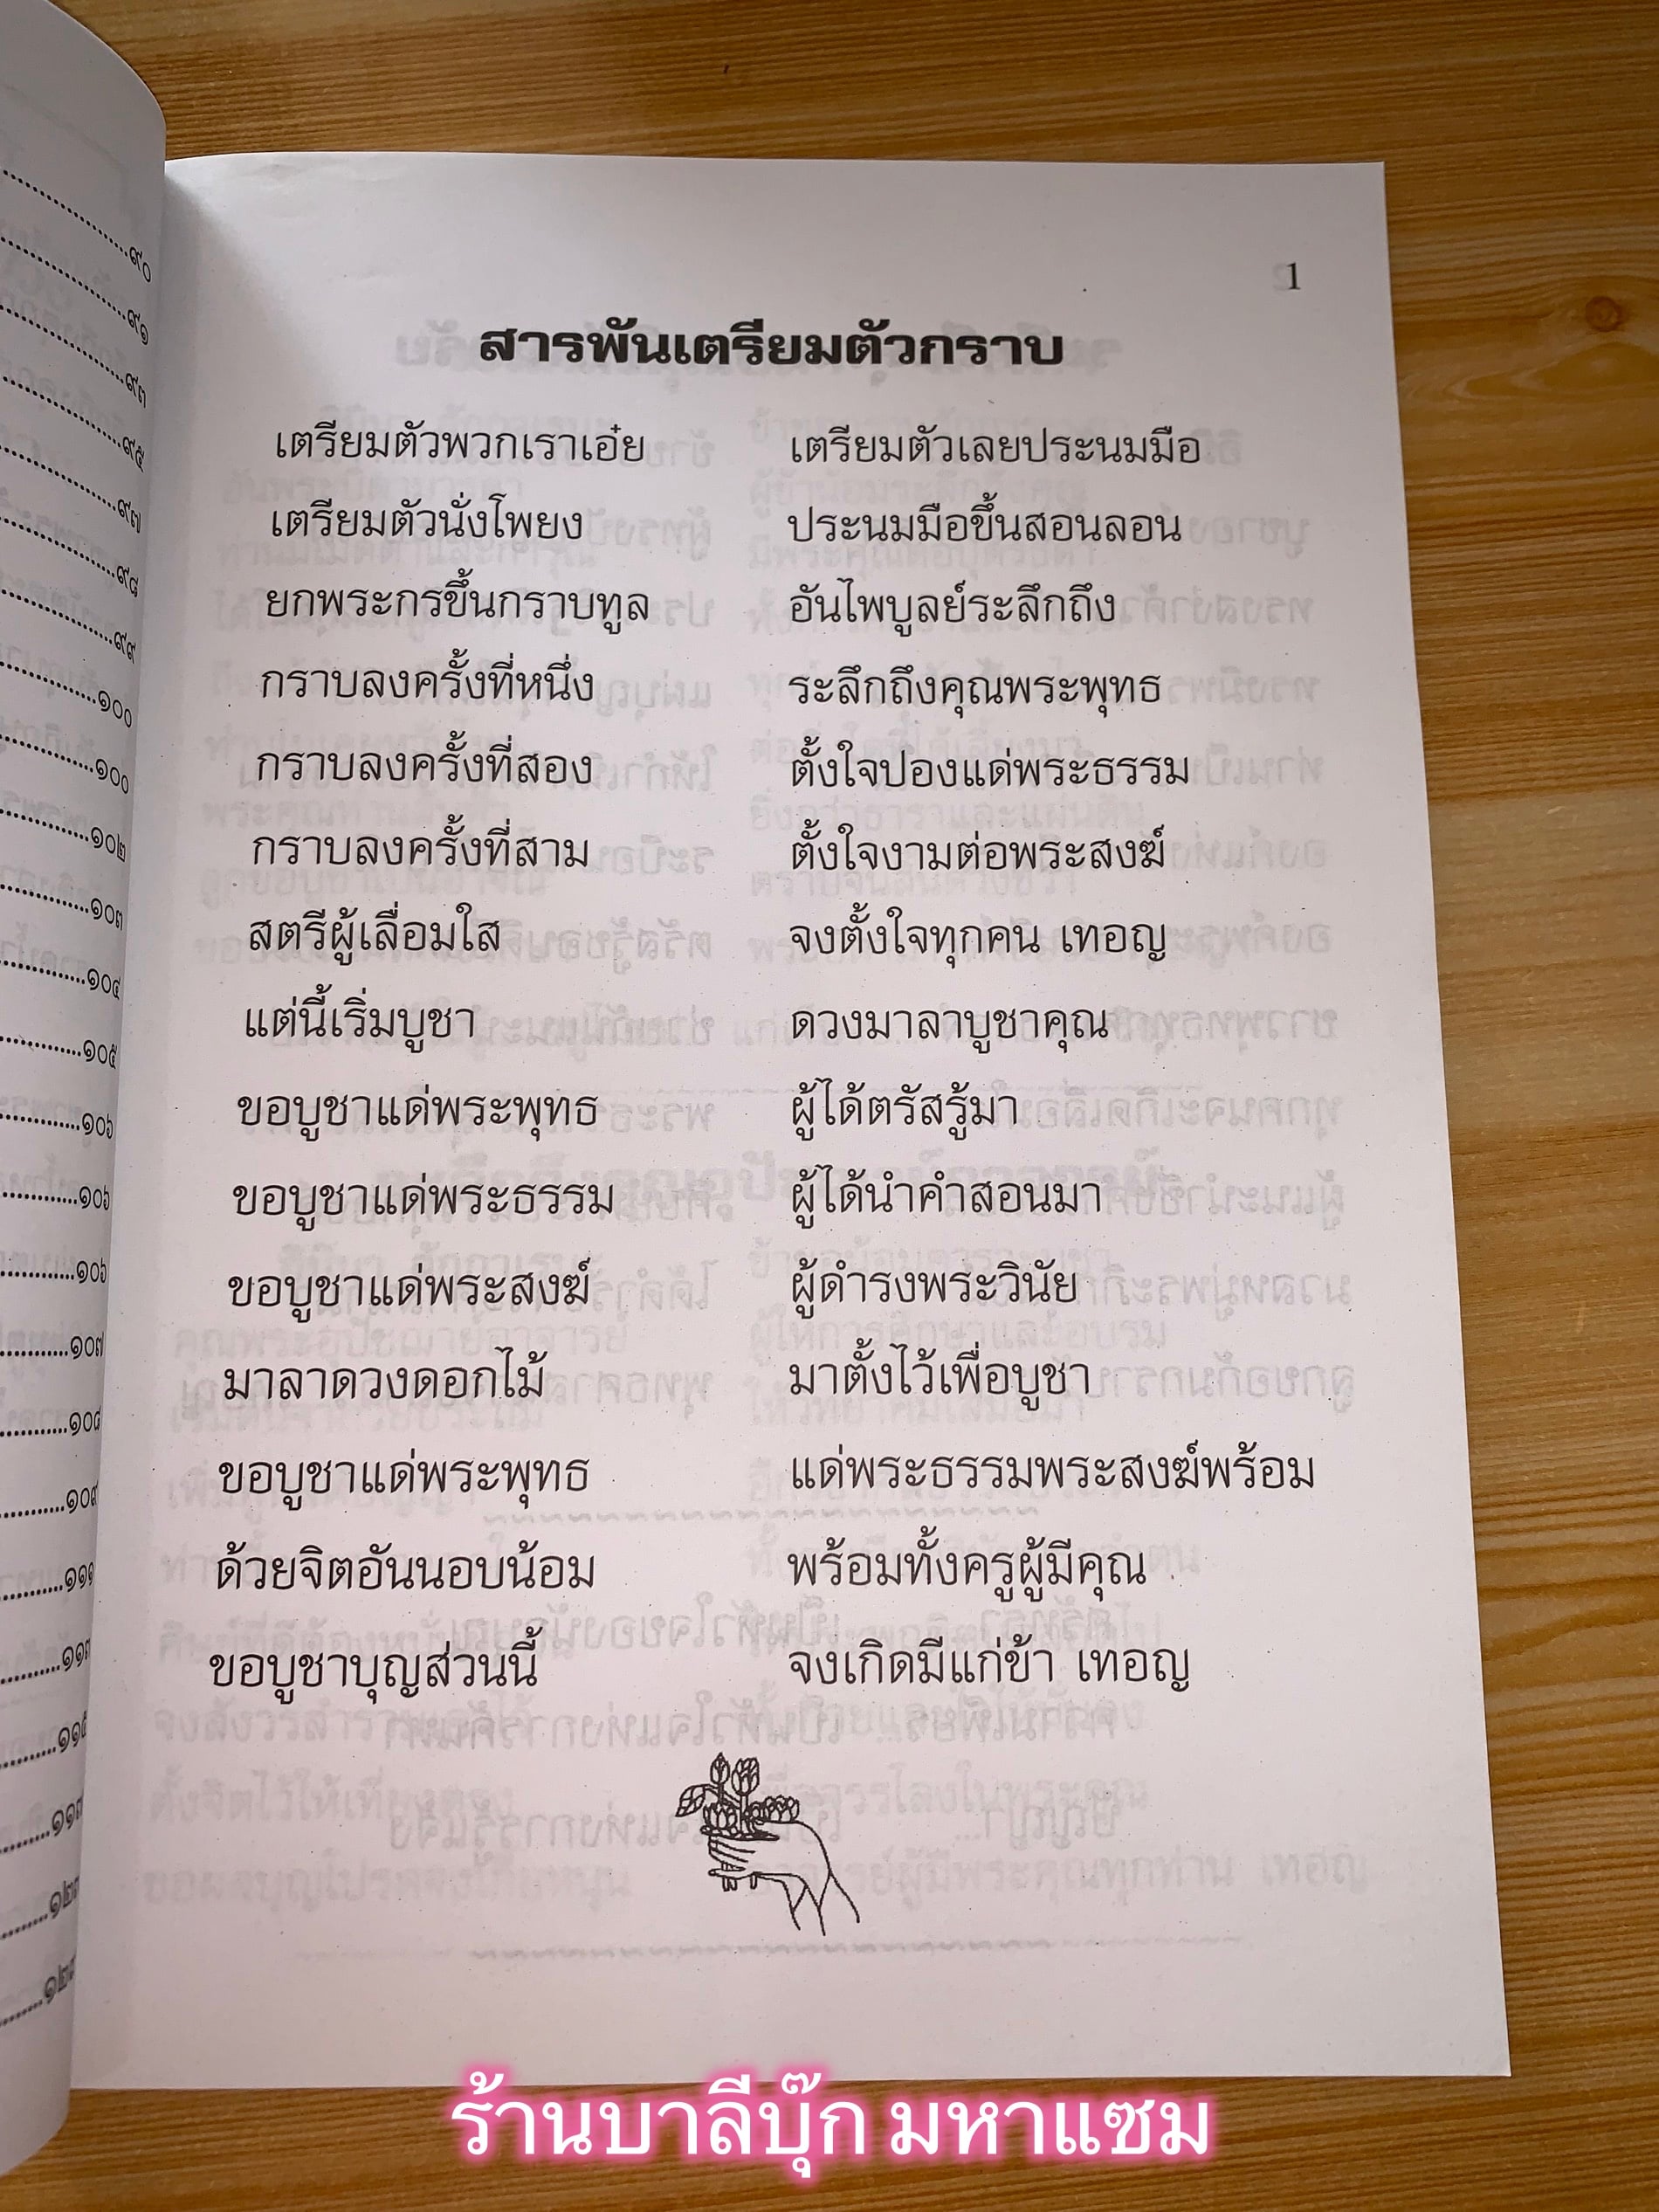 1
สารพันเตรียมตัวกราบ
เตรียมตัวพวกเราเอ๋ย เตรียมตัวเลยประนมมือ
เตรียมตัวนั่งโพยง ประนมมือขึ้นสอนลอน
ยกพระกรขึ้นกราบทูล อันไพบูลย์ระลึกถึง
กราบลงครั้งที่หนึ่ง ระลึกถึงคุณพระพุทธ
กราบลงครั้งที่สอง ตั้งใจปองแด่พระธรรม
กราบลงครั้งที่สาม ตั้งใจงามต่อพระสงฆ์
สตรีผู้เลื่อมใส จงตั้งใจทุกคน เทอญ
แต่นี้เริ่มบูชา ดวงมาลาบูชาคุณ
ขอบูชาแด่พระพุทธ ผู้ได้ตรัสรู้มา
ขอบูชาแด่พระธรรม ผู้ได้นำคำสอนมา
ขอบูชาแด่พระสงฆ์ ผู้ดำรงพระวินัย
มาลาดวงดอกไม้ มาตั้งไว้เพื่อบูชา
ขอบูชาแด่พระพุทธ แด่พระธรรมพระสงฆ์พร้อม
ด้วยจิตอันนอบน้อม พร้อมทั้งครูผู้มีคุณ
ขอบูชาบุญส่วนนี้ จงเกิดมีแก่ข้า เทอญ
๙๐
๙๑
๙๓
๙๕
๙๗
๙๘
๙๙
๑๐๐
๑๐๐
๑๐๒
๑๐๓
๑๐๔
๑๐๕
๑๐๖
๑๐๖
๑๐๖
๑๐๗
๑๐๘
๑๐๙
๑๑๑
๑๑๓
๑๑๕
๑๑๗
ร้านบาลีบุ๊ก มหาแซม